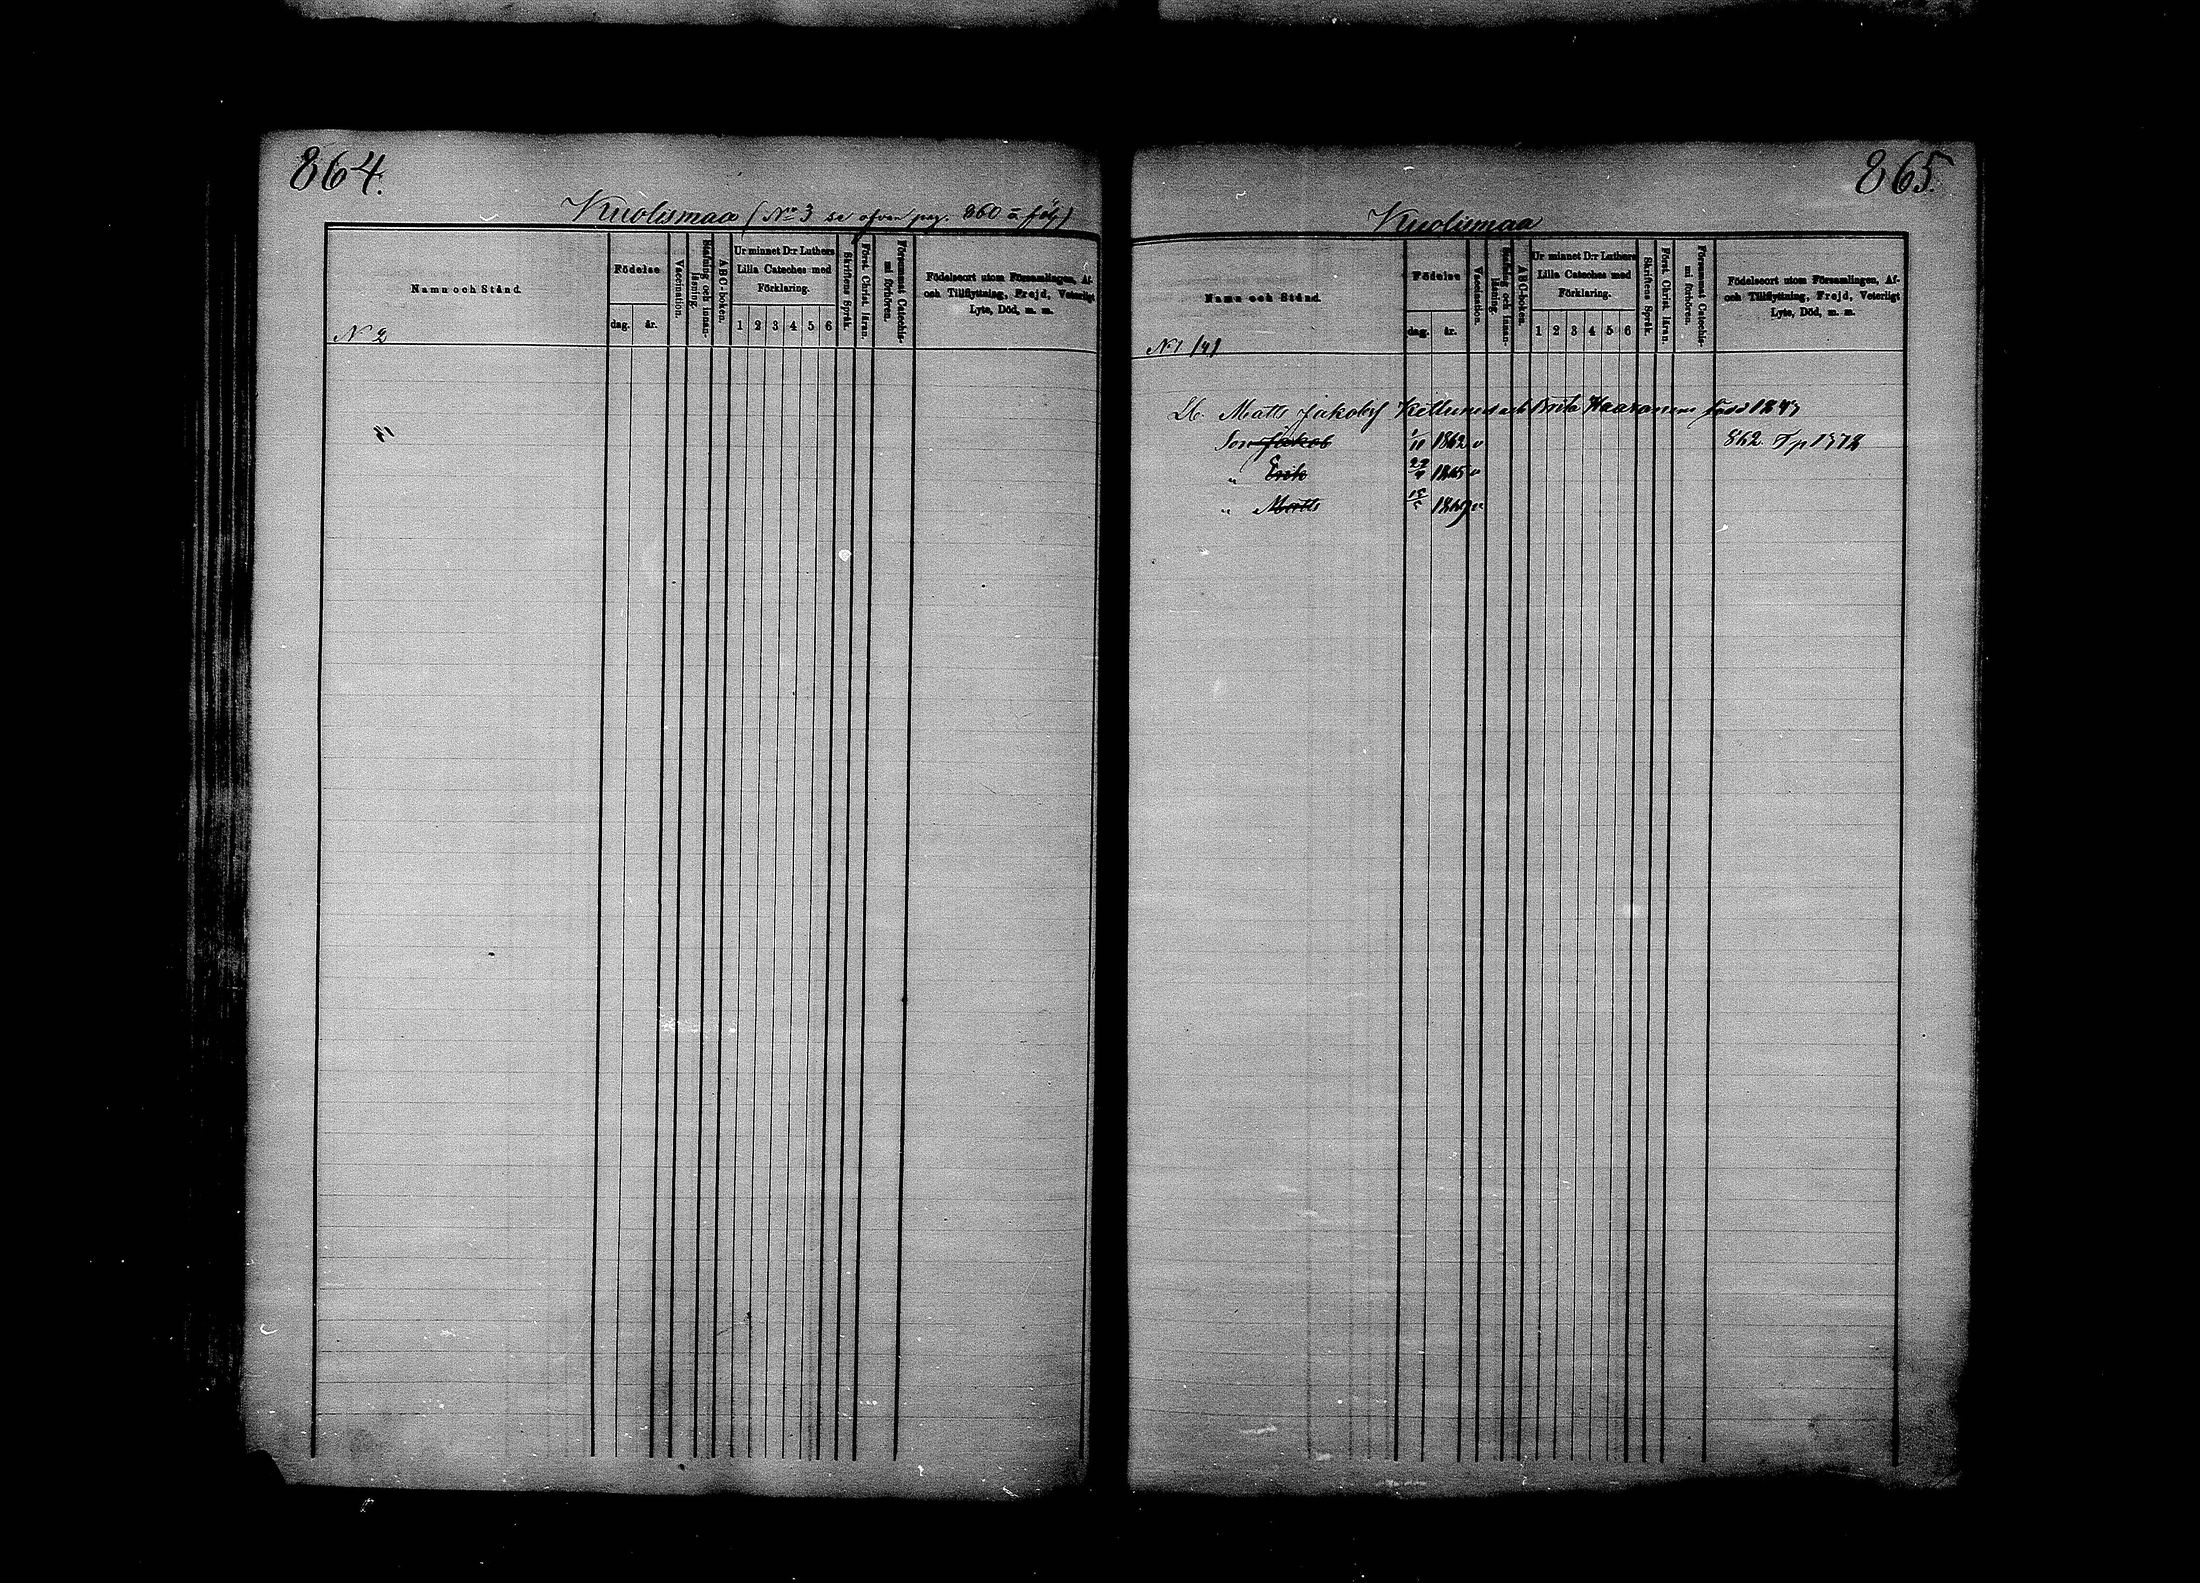 864.
Kuolismaa (No 3 se ofvan pag. 860 o följ)
Namn och Stånd.
Födelse
dag.
år.
Vaccination.
Stafning och innan-
läsning.
ABC-boken.
Ur minnet D:r Luthers
Lilla Cateches med
Förklaring.
1 2 3 4 5 6
Skriftens Språk.
Först. Christ. läran.
Försummat Catechis-
mi förhören.
Födelseort utom Församlingen, Af-
och Tillflyttning, Frejd, Veterligt
Lyte, Död, m. m.
N 2
865.
Kuolismaa
Namn och Stånd.
Födelse
dag.
år.
Vaccination.
Stafning och innan-
läsning.
ABC-boken.
Ur minnet D:r Luthers
Lilla Cateches med
Förklaring.
1 2 3 4 5 6
Skriftens Språk.
Först. Christ. läran.
Försummat Catechis-
mi förhören.
Födelseort utom Församlingen, Af-
och Tillflyttning, Frejd, Veterligt
Lyte, Död, m. m.
N 1
Matts Jakobsf och Brita Haaranen
Son Jakob 1862 v 862
" Erik 1865 v
" Matts 1869 v